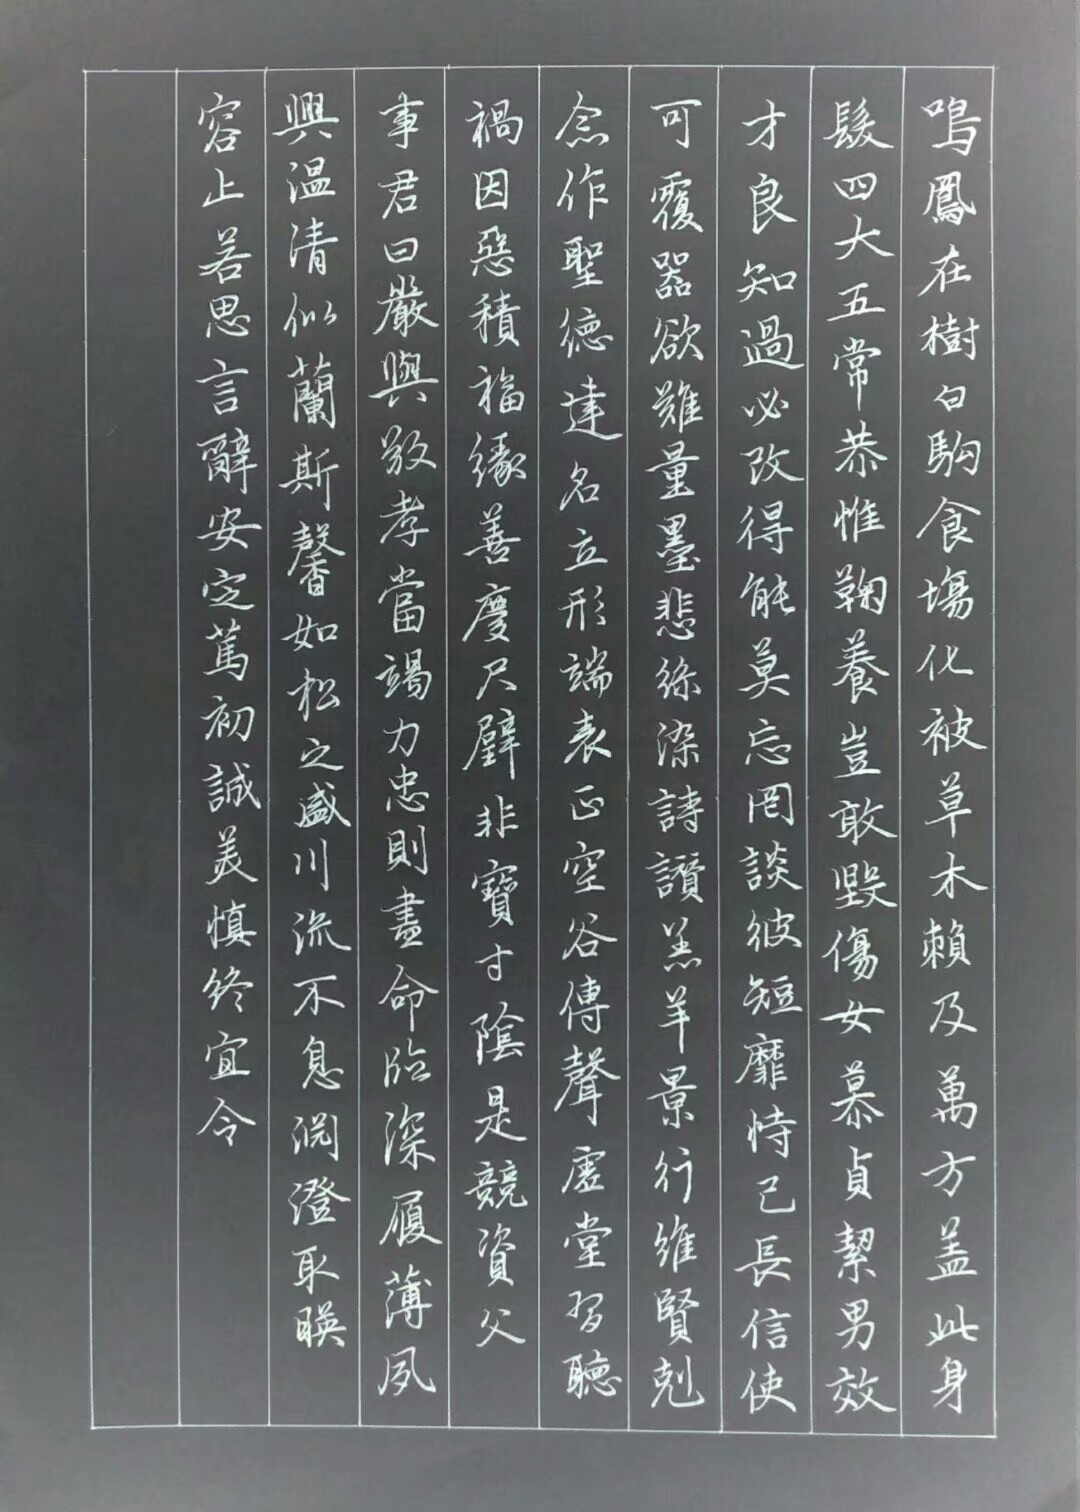 鳴鳳在樹白駒食場化被草木賴及萬方盖此身
髮四大五常恭惟鞠養豈敢毀傷女慕貞絜男效
才良知過必改得能莫忘罔談彼短靡恃己長信使
可覆器欲難量墨悲絲染詩讚羔羊景行維賢剋
念作聖德建名立形端表正空谷傳聲虛堂習聽
禍因惡積福緣善慶尺璧非寶寸陰是競資父
事君曰嚴與敬孝當竭力忠則盡命臨深履薄夙
興温清似蘭斯馨如松之盛川流不息淵澄取暎
容止若思言辭安定篤初誠美慎終宜令